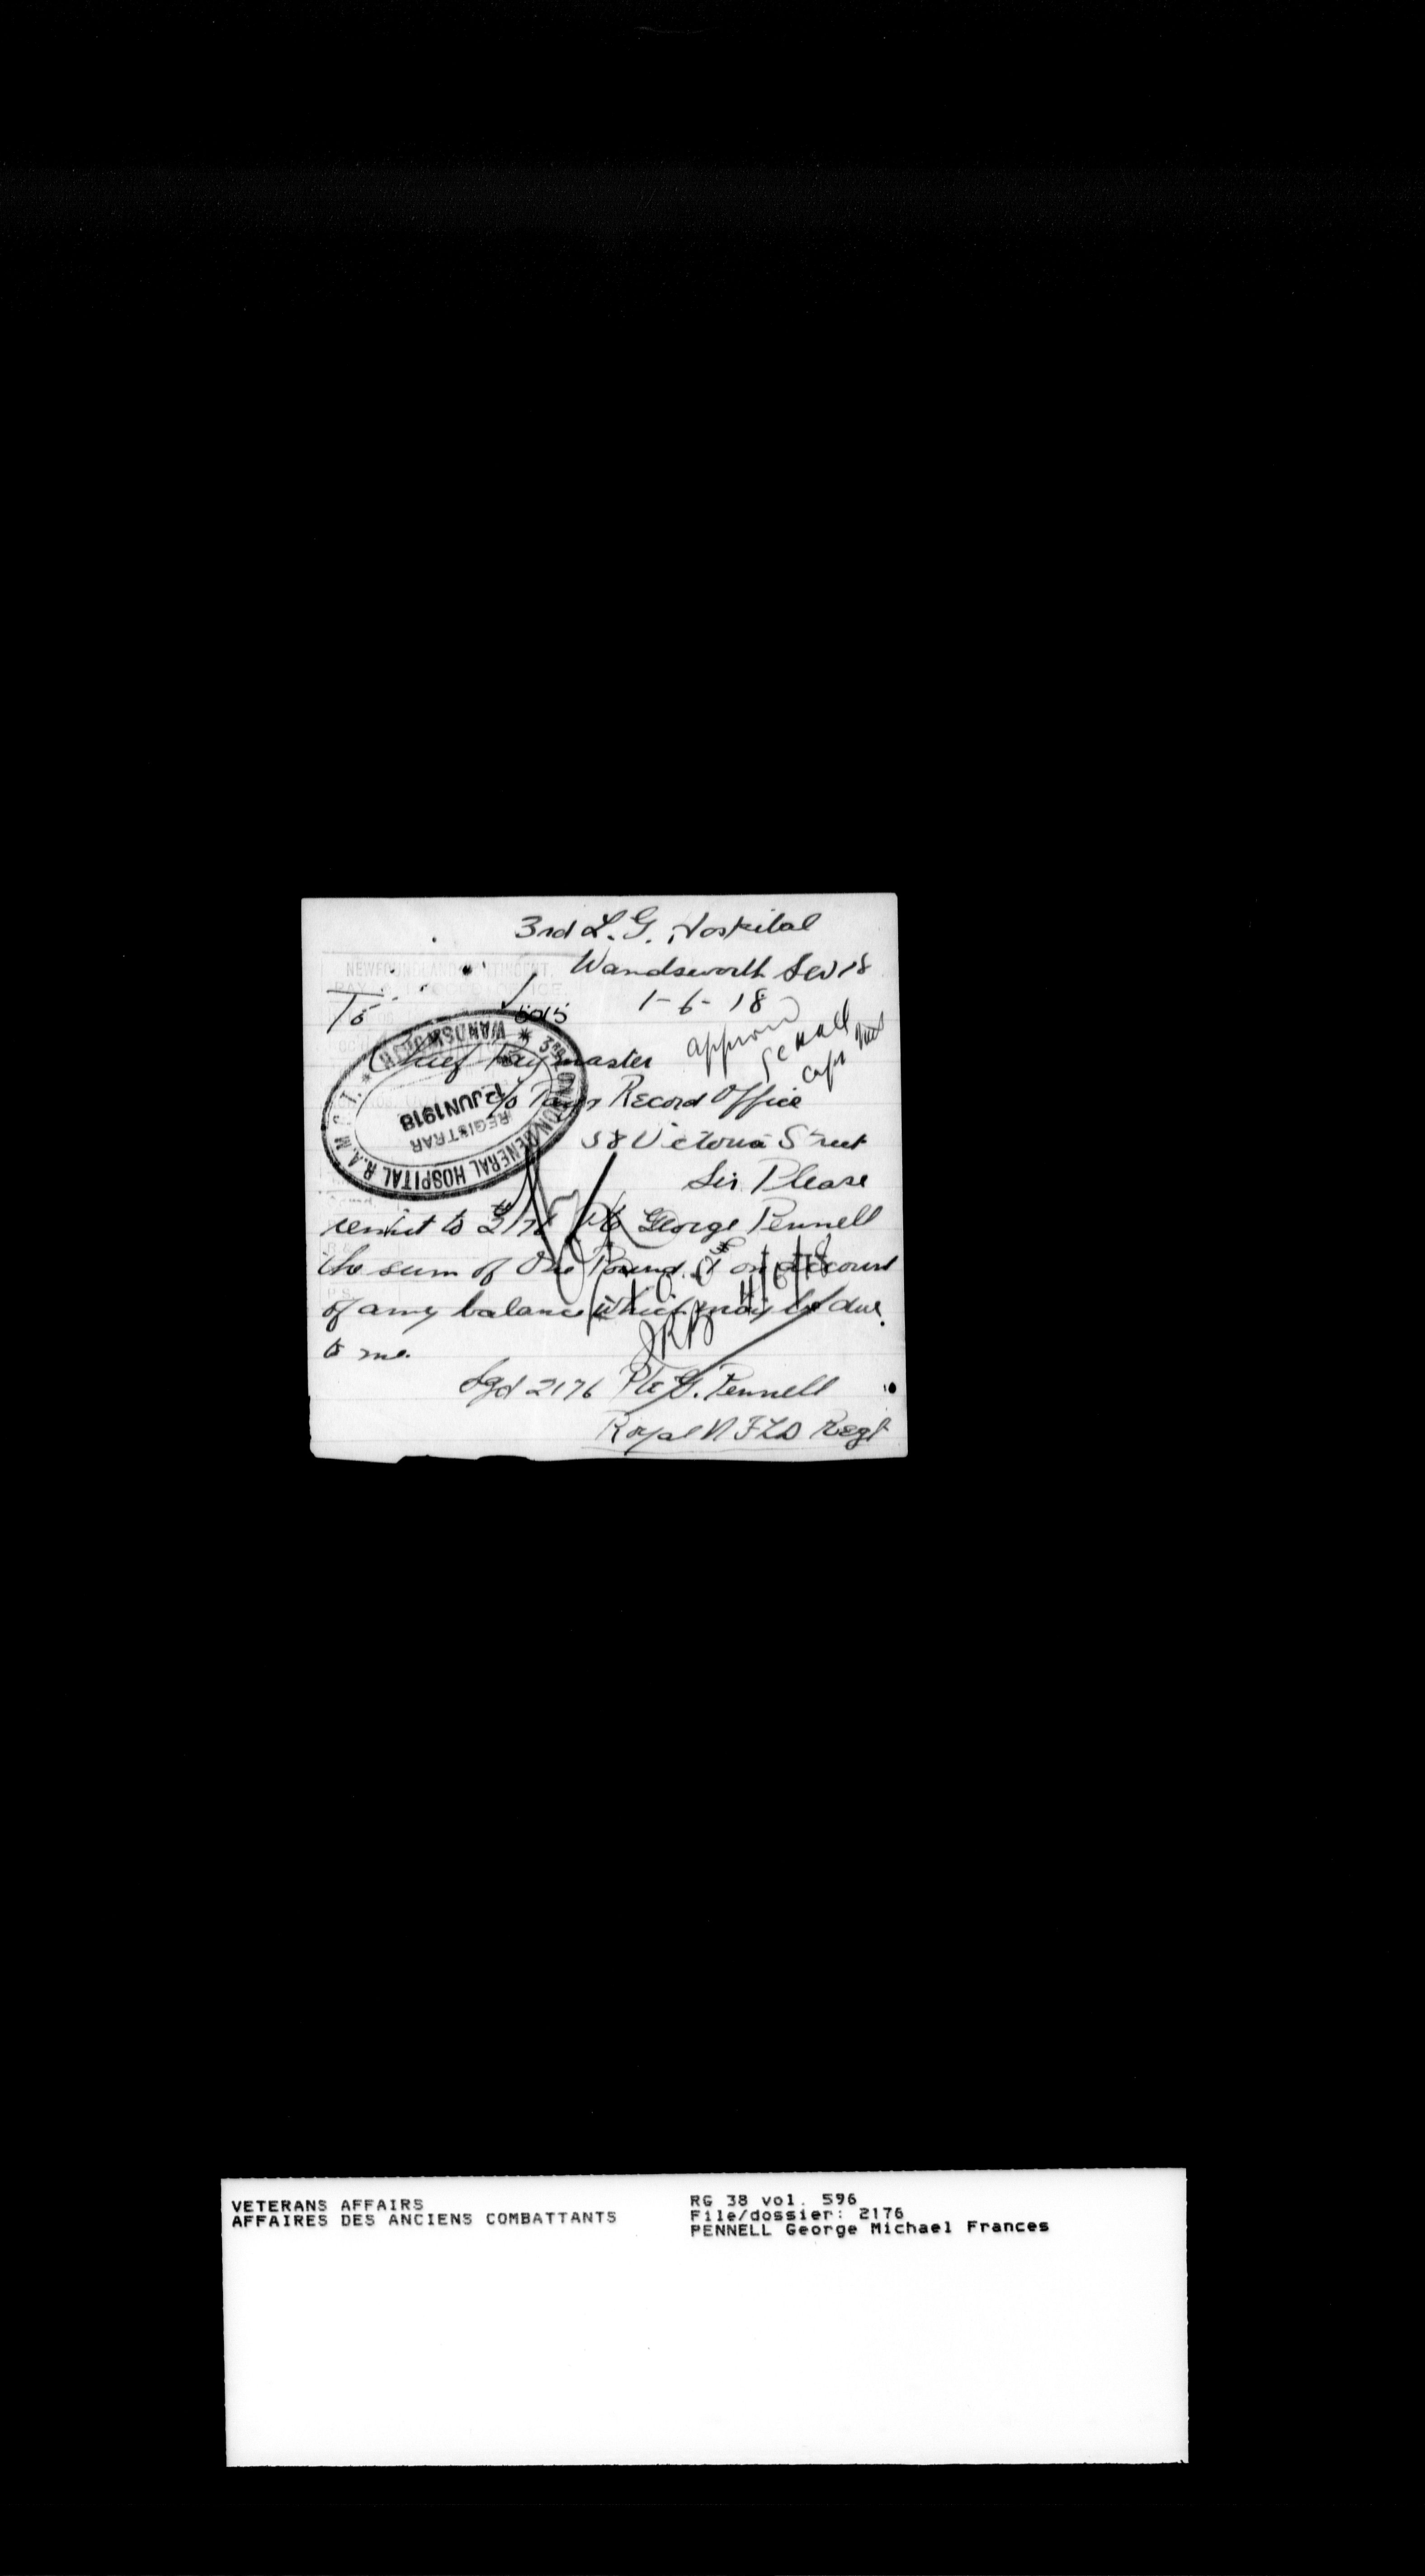 3rd L. G. Hospital
NEWFOUNDLAND CONTINGENT.
Wandsworth SW 18
PAY & RECORD OFFICE.
To
1-6-18
5015
approved
Capt
Chief Paymaster
c/o Pay & Record Office
58 Victoria Street
3RD LONDON GENERAL HOSPITAL R.A.M.C.T. * WANDSWORTH *
REGISTRAR
JUN 1918
Sir Please
remit to 2176 Pte George Pennell
the sum of One Pound £1 on account
of any balance which may be due
to me.
£1.0.0
4/6/18
Sgd 2176 Pte G. Pennell
Royal NFLD Regt
VETERANS AFFAIRS
AFFAIRES DES ANCIENS COMBATTANTS
RG 38 vol. 596
File/dossier: 2176
PENNELL George Michael Frances